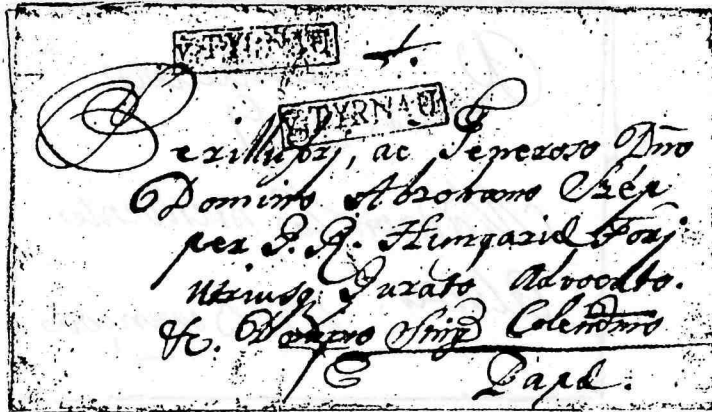 V. TYRNAU
V. TYRNAU
Perillustri, ac Generoso Dno
Domino Abrahamo Szép
per I. R. Hungariae Fori
utriusq Jurato Advocato.
&c. Dno Colendmo
Papae.